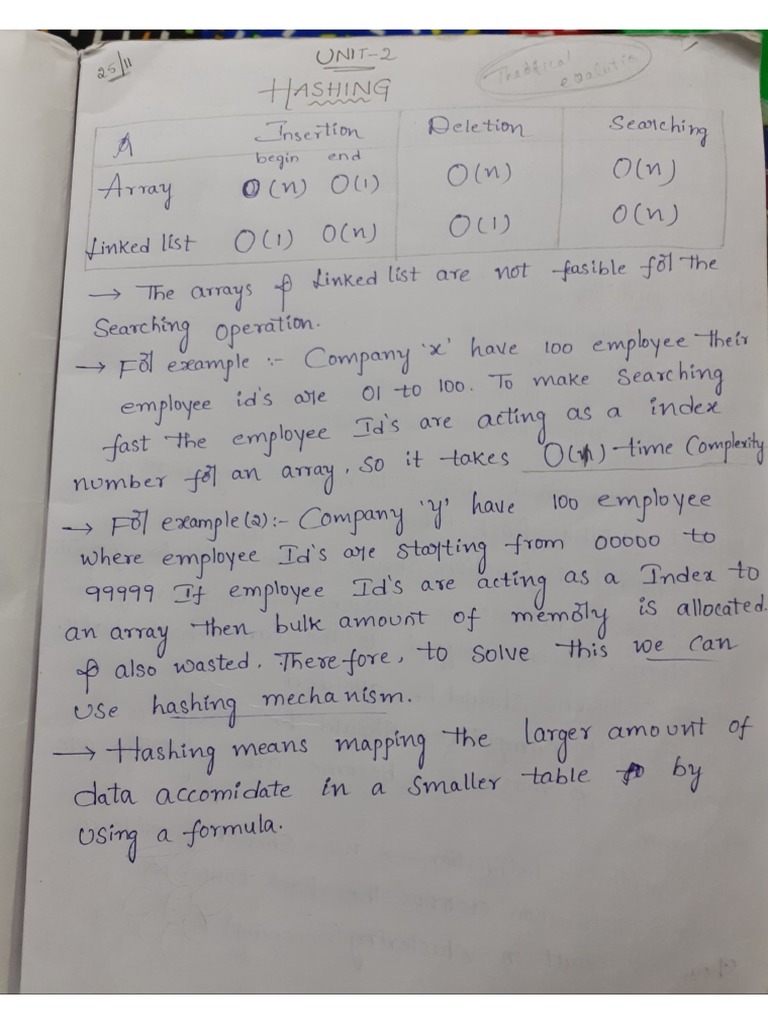 25/11
UNIT-2
HASHING
Insertion Deletion Searching
begin end
Array O(n) O(1) O(n) O(n)
Linked list O(1) O(n) O(1) O(n)
→ The arrays & Linked list are not fasible for the
Searching operation.
→ For example :- Company 'x' have 100 employee their
employee id's are 01 to 100. To make Searching
fast the employee Id's are acting as a index
number for an array, so it takes O( )-time Complexity
→ For example(2):- Company 'y' have 100 employee
where employee Id's are starting from 00000 to
99999 If employee Id's are acting as a Index to
an array then bulk amount of memory is allocated.
& also wasted. Therefore, to solve this we can
use hashing mechanism.
→ Hashing means mapping the larger amount of
data accomidate in a smaller table by
using a formula.